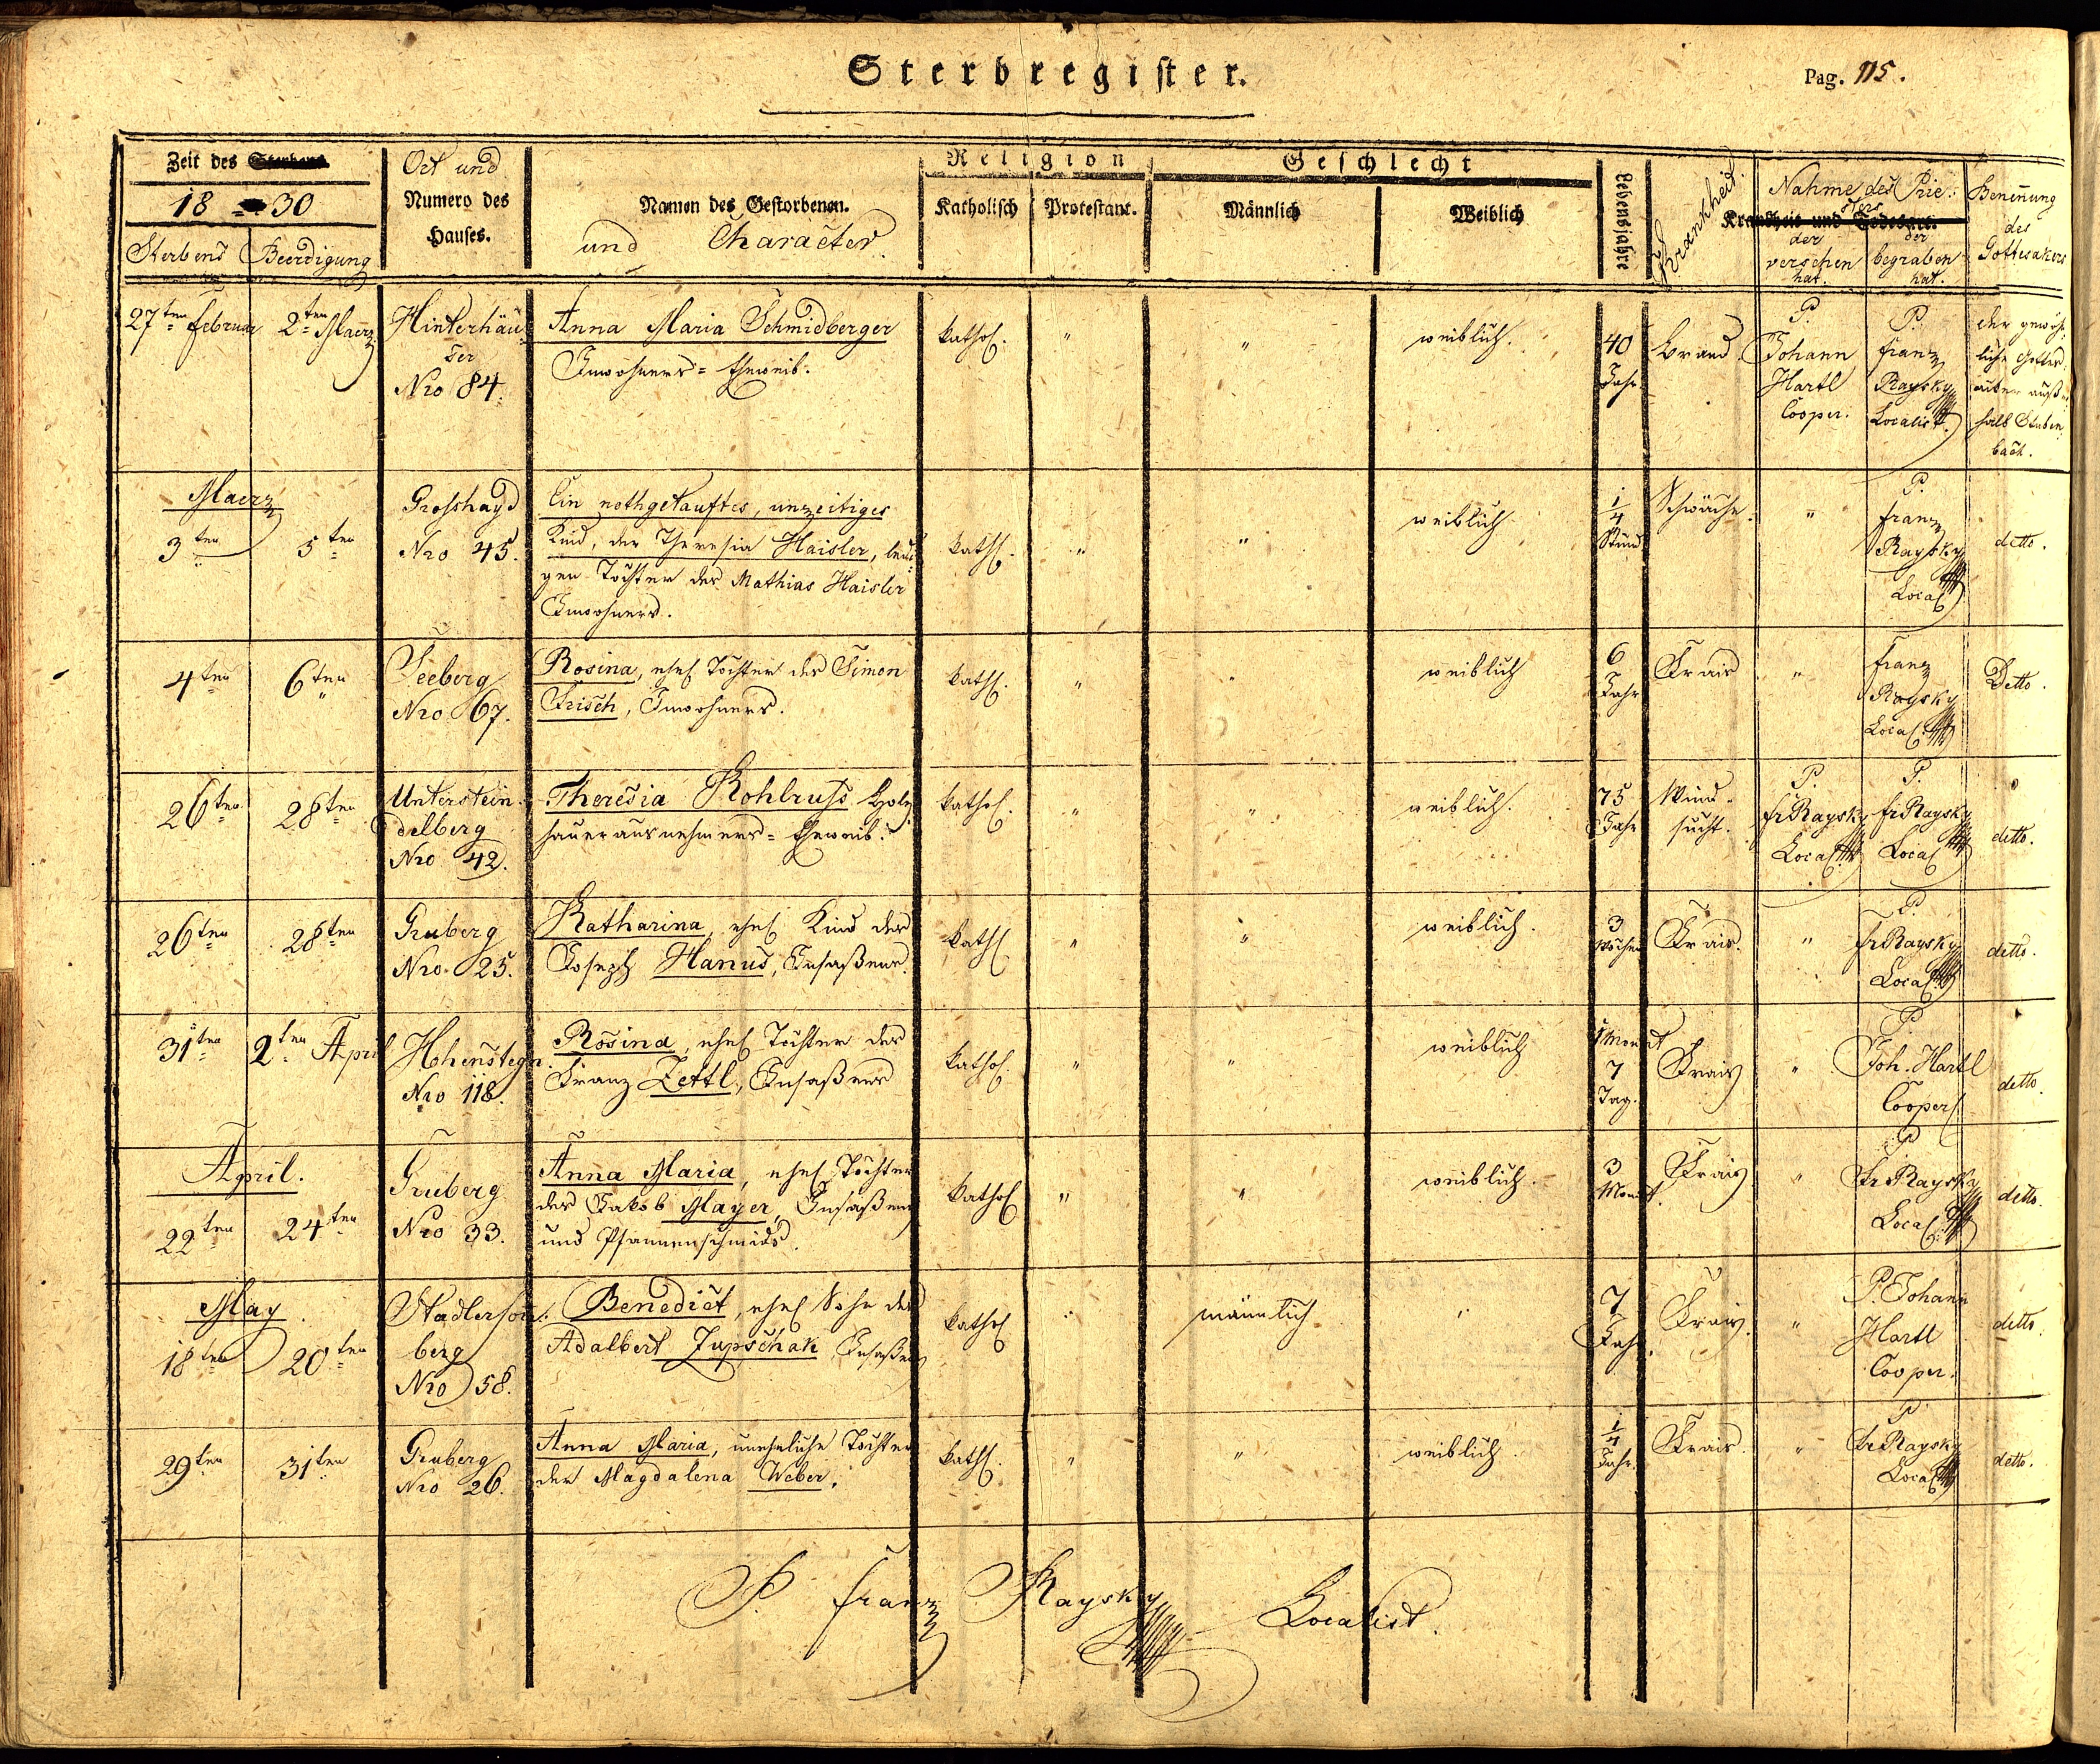 Sterbregister.
Pag. 115.
Zeit des Sterbens
18 30
Sterbens Beerdigung
Ort und
Numero des
Hauses.
Namen des Gestorbenen.
und Character
Religion
Katholisch Protestant.
Geschlecht
Männlich Weiblich
Lebensjahre
Krankheit.
Krankheit und Todesart.
Nahme des Prie:
sters
der
versehen
hat.
der
begraben
hat.
Benennung
des
Gottesakers
27ten Februar 2ten Maerz
Hinterhäu
ser
Nro 84.
Anna Maria Schmidberger
Inwohners= Eheweib.
kathol. " " weiblich.
40
Jahr.
Brand
P.
Johann
Hartl
Cooper.
P.
Franz
Raysky
Localist.
der gewöhn
liche Gottes
aker außer
halb Stuben
bach.
Maerz
3ten 5ten
Grosshayd
Nro 45.
Ein nothgetauftes, unzeitiges
Kind, der Theresia Haisler, ledi
gen Tochter des Mathias Haisler
Inwohners.
kathl. " " weiblich
1/4
Stund
Schwäche. "
P.
Franz
Raysky
Local
detto.
4ten 6ten
Seeberg
Nro 67.
Rosina, ehel Tochter des Simon
Frisch, Inwohners.
kathl. " " weiblich
6
Jahr
Frais "
Franz
Raysky
Local.
Detto.
26ten 28ten
Unterstein
delberg
Nro 42.
Theresia Kohlruss Holz
hauerausnehmers= Eheweib.
kathol. " " weiblich.
75
Jahr
Wind-
sucht.
P.
fr Raysky
Local.
P.
fr Raysky
Local
detto.
26ten 28ten
Gruberg
Nro 25.
Katharina, ehel Kind des
Joseph Hanus, Insaßens.
kathl " " weiblich.
3
Wochen
Frais. "
P.
fr Raysky
Local.
detto.
31ten 2ten April
Hohenstegn.
Nro 118.
Rosina, ehel Tochter des
Franz Zettl, Insaßens
kathol. " " weiblich
1 Monat
7
Tag.
Frais "
P.
Joh. Hartl
Cooper
detto.
April.
22ten 24ten
Gruberg
Nro 33.
Anna Maria, ehel Tochter
des Jakob Mayer, Insaßens
und Pfannenschmids.
kathol " " weiblich.
3
Monat.
Frais "
P
Fr Raysky
Local.
detto.
May
18ten 20ten
berg
Nro 58.
Benedict, ehel Sohn des
Adalbert Zupschak Insaßens
kathol " männlich "
7
Jahr.
Frais. "
P. Johann
Hartl
Cooper.
detto.
29ten 31ten
Gruberg
Nro 26.
Anna Maria, uneheliche Tochter
der Magdalena Weber.
kathl. " " weiblich.
1/4
Jahr.
Frais. "
P
Fr Raysky
Local
detto.
P. Franz Raysky Localist.